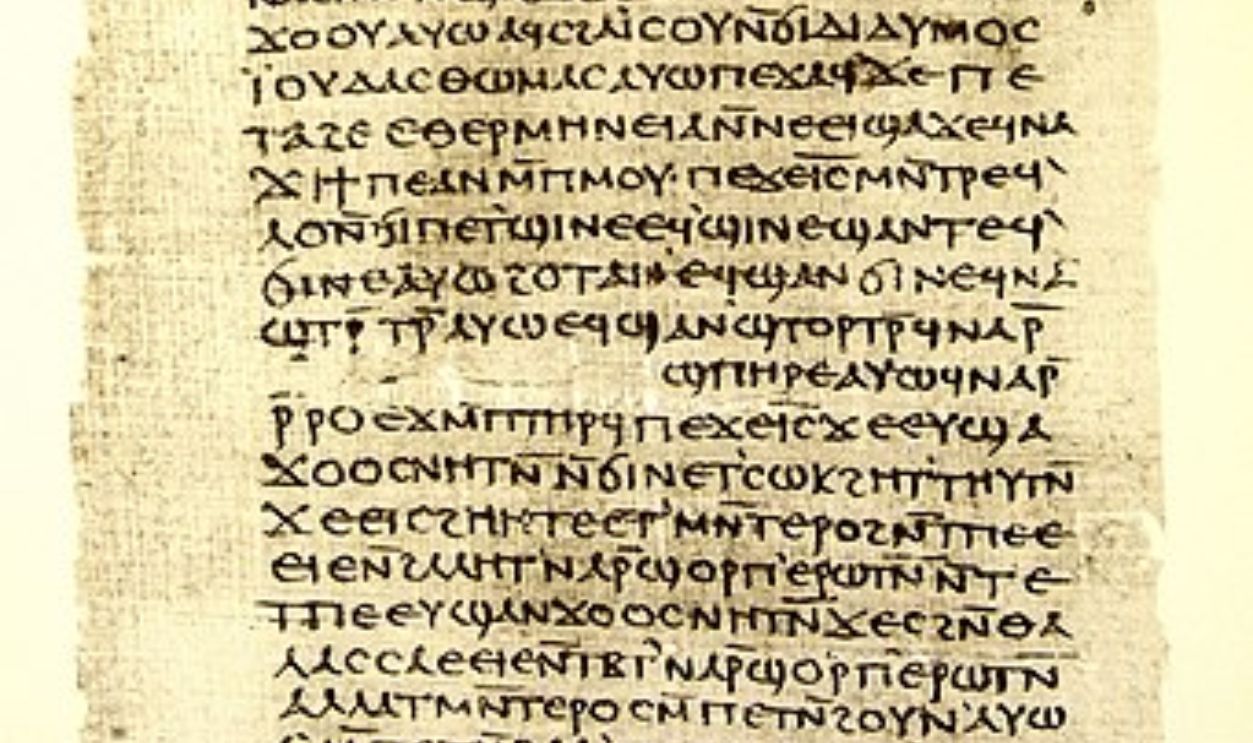 ϫⲟⲟⲩⲁⲩⲱⲁϥⲥϩⲁⲓ̈ⲥⲟⲩⲛ̄ϭⲓⲇⲓⲇⲩⲙⲟⲥ
ⲓ̈ⲟⲩⲇⲁⲥⲑⲱⲙⲁⲥⲁⲩⲱⲡⲉϫⲁϥϫⲉⲡⲉ
ⲧⲁϩⲉⲉⲑⲉⲣⲙⲏⲛⲉⲓⲁⲛ̄ⲛⲉⲉⲓϣⲁϫⲉϥⲛⲁ
ϫⲓϯⲡⲉⲁⲛⲙ̄ⲡⲙⲟⲩ·ⲡⲉϫⲉⲓ̄ⲥ̄ⲙⲛ̄ⲧⲣⲉϥ`
ⲗⲟⲛ̄ϭⲓⲡⲉⲧ`ϣⲓⲛⲉⲉϥ`ϣⲓⲛⲉϣⲁⲛⲧⲉϥ`
ϭⲓⲛⲉⲁⲩⲱϩⲟⲧⲁⲛⲉϥϣⲁⲛϭⲓⲛⲉϥⲛⲁ
ϣⲧⲣ̄ⲧⲣ̄ⲁⲩⲱⲉϥϣⲁⲛϣⲧⲟⲣⲧⲣ̄ϥⲛⲁⲣ̄
ϣⲡⲏⲣⲉⲁⲩⲱϥⲛⲁⲣ̄
ⲣ̄ⲣⲟⲉϫⲙ̄ⲡⲧⲏⲣϥⲡⲉϫⲉⲓ̄ⲥ̄ϫⲉⲉⲩϣⲁ
ϫⲟⲟⲥⲛⲏⲧⲛ̄ⲛ̄ϭⲓⲛⲉⲧ`ⲥⲱⲕϩⲏⲧ`ⲧⲏⲩⲧⲛ̄
ϫⲉⲉⲓⲥϩⲏⲏⲧⲉⲉⲧ`ⲙⲛ̄ⲧⲉⲣⲟϩⲛ̄ⲧⲡⲉⲉ
ⲉⲓⲉⲛ̄ϩⲁⲗⲏⲧ`ⲛⲁⲣ̄ϣⲟⲣⲡ`ⲉⲣⲱⲧⲛ̄ⲛ̄ⲧⲉ
ⲧⲡⲉⲉⲩϣⲁⲛϫⲟⲟⲥⲛⲏⲧⲛ̄ϫⲉⲥϩⲛ̄ⲑⲁ
ⲗⲁⲥⲥⲁⲉⲉⲓⲉⲛ̄ⲧⲃⲧ`ⲛⲁⲣ̄ϣⲟⲣⲡ`ⲉⲣⲱⲧⲛ̄
ⲁⲗⲗⲁⲧⲙⲛ̄ⲧⲉⲣⲟⲥⲙ̄ⲡⲉⲧⲛ̄ϩⲟⲩⲛ`ⲁⲩⲱ